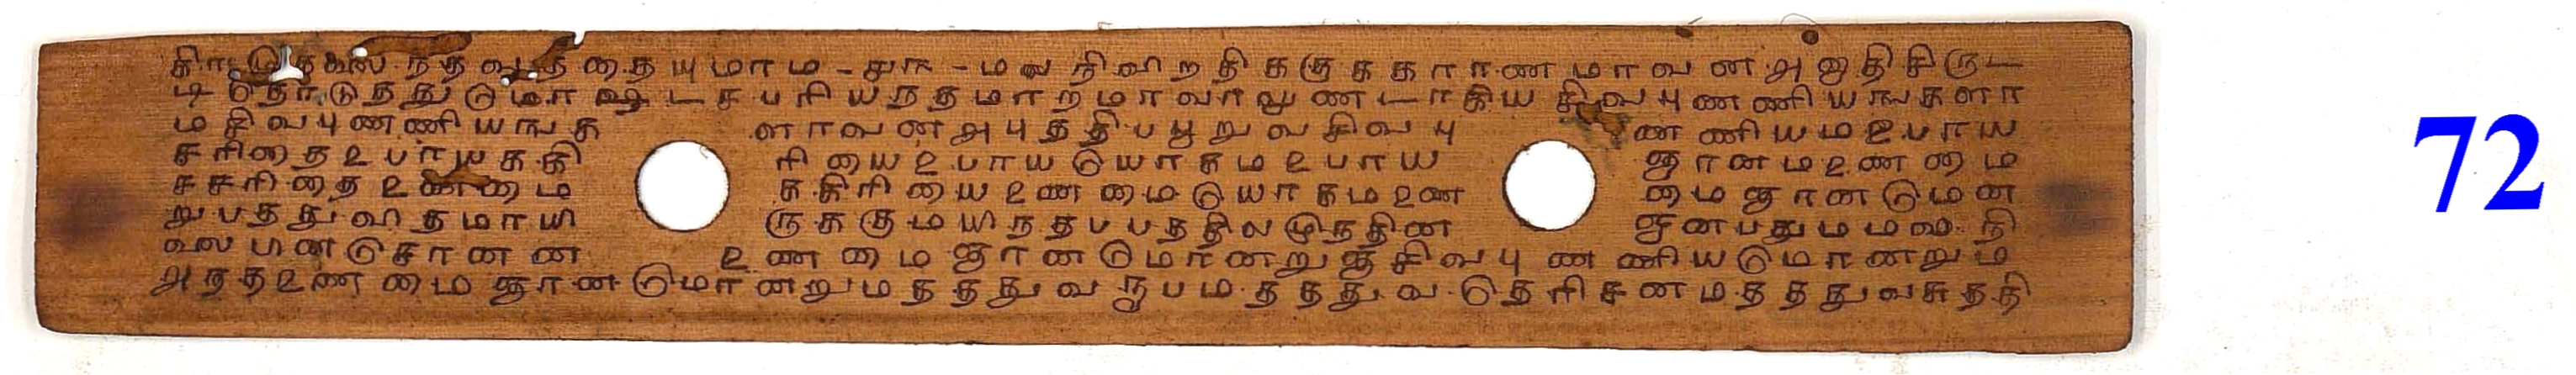 யுமாம - ௪௩ - மல நிவிறதிககுககாரணமாவன அனுதிசிருட
டிதொடுதது மோஷடசபரியநதமாறமாவாலுணடாகிய சிவபுணணியஙகளா
மசிவபுணணியஙக ளாவன அபுததிபபூறுவசிவபு ணணியமஉபாய
சரிதைஉபாயககி ரியைஉபாயயோகமஉபாய ஞானமஉணமை
சசரிதைஉணமை ககிரியைஉணமையோகமஉண மைஞானமென
றுபததுவிதமாயி ருககுமயிநதபபததிலழுநதின
உணமைஞானமொனறு சிவபுணணியமொனறும
அநதஉணமைஞானமொனறுமதததுவரூபமதததுவதெரிசனமதததுவசுததி
72